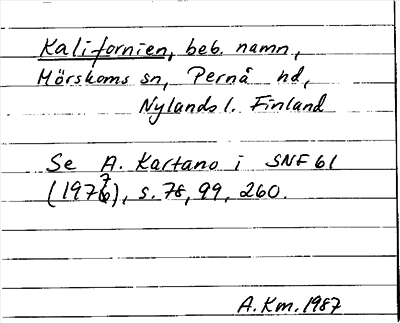 Kalifornien, beb. namn,
Mörskoms sn, Pernå hd,
Nylands l. Finland
Se A. Kartano i SNF 61
(1977), s. 78, 99, 260.
A.Km.1987